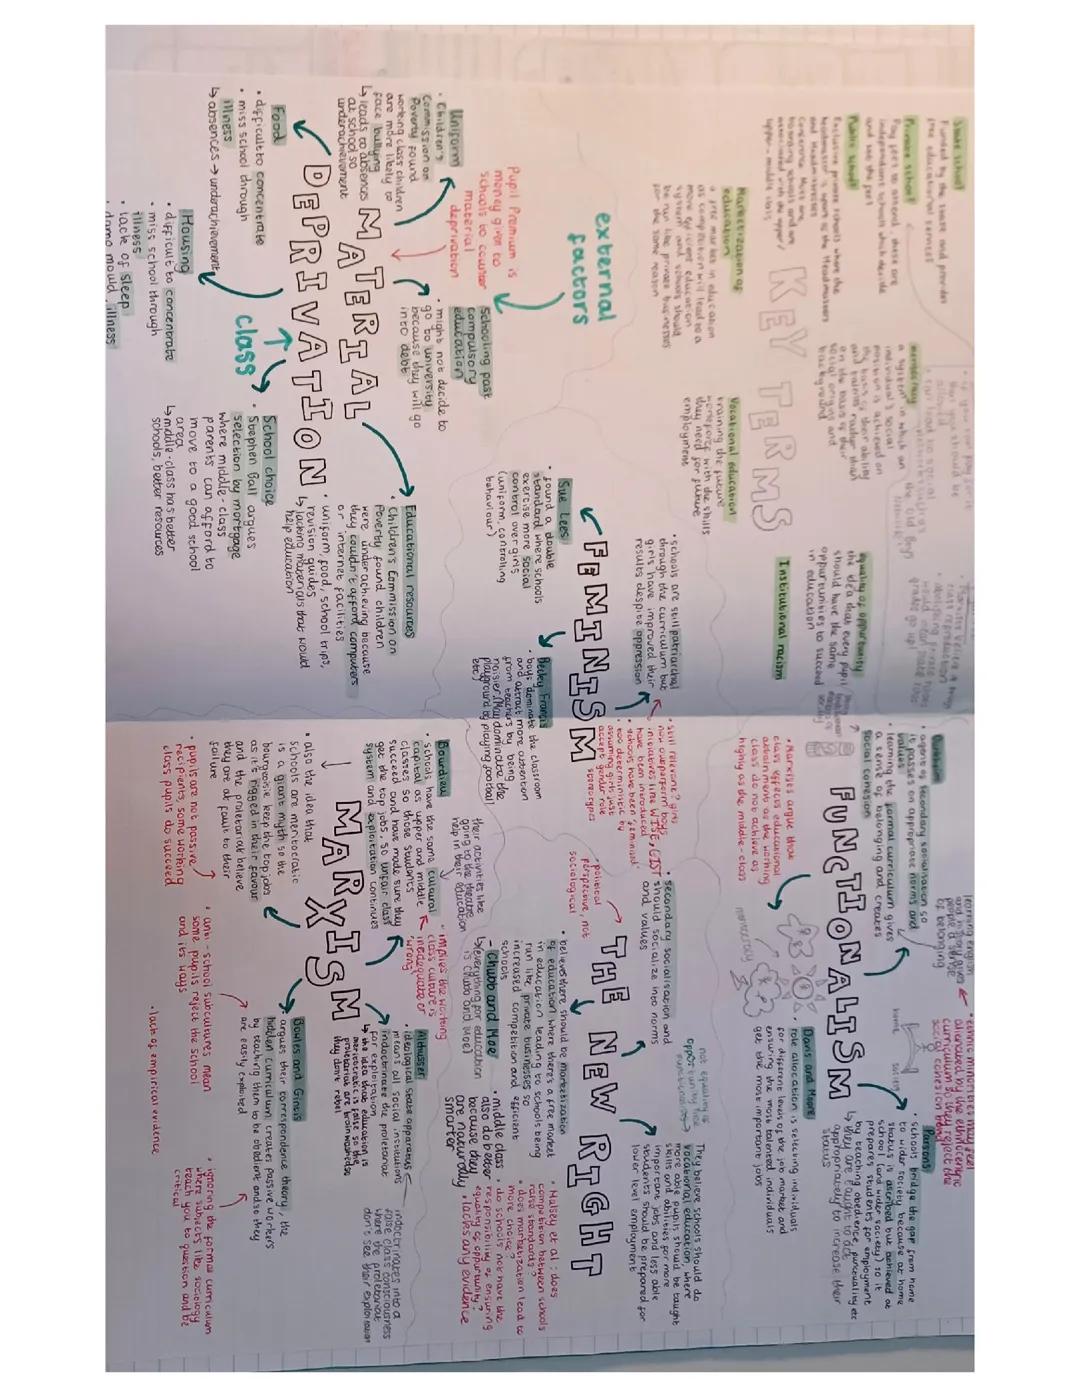 KEY TERMS
State school
Funded by the state and provides
free educational services
Private school
Pay fees to attend, these are
independent schools which decide
and set the pay
Public school
Exclusive private schools where the
headmaster is apart of the Headmasters
and Headmistresses
Conference. Most are
boarding schools and are
associated with the upper/
upper-middle class
Marketization of
education
a free market in education
as competition will lead to a
more efficient education
system and schools should
be run like private businesses
for the same reason
meritocracy
a system in which an
individual's social
position is achieved on
the basis of their ability
and talent rather than
on the basis of their
social origins and
background
Vocational education
training the future
workforce with the skills
they need for future
employment
equality of opportunity
the idea that every pupil
should have the same
opportunities to succeed
in education
Institutional racism
external
factors
Pupil Premium is
money given to
schools to counter
material
deprivation
MATERIAL
DEPRIVATION
class
Uniform
• Children's
Commission on
Poverty found
working class children
are more likely to
face bullying
↳ leads to absences
at school so
underachievement
Food
• difficult to concentrate
• miss school through
illness
↳ absences → underachievement
Housing
• difficult to concentrate
• miss school through
illness
• lack of sleep
Schooling past
compulsory
education
• might not decide to
go to university
because they will go
into debt
School choice
• Stephen Ball argues
selection by mortgage
where middle-class
parents can afford to
move to a good school
area
↳ middle-class has better
schools, better resources
Educational resources
• Children's Commission on
Poverty found children
were under achieving because
they couldn't afford computers
or internet facilities
• uniform, food, school trips,
revision guides
↳ lacking materials that would
help education
FEMINISM
• schools are still patriarchal
through the curriculum but
girls have improved their
results despite oppression
Sue Lees
• found a double
standard where schools
exercise more social
control over girls
(uniform, controlling
behaviour)
Becky Francis
• boys dominate the classroom
and attract more attention
from teachers by being
noisier. (May dominate the
playground by playing football
etc)
• still relevant? girls
now outperform boys,
initiatives like WISE, GIST
have been introduced
• schools have been 'feminised'
• too deterministic by
assuming girls just
accept gender role
stereotypes
FUNCTIONALISM
Durkheim
• agent of secondary socialisation so
it passes on appropriate norms and
values
• learning the formal curriculum gives
a sense of belonging and creates
social cohesion
learning english
and history gives
people a sense
of belonging
• ethnic minorities may feel
alienated by the ethnocentric
curriculum so they reject the
social cohesion
• Marxists argue that
class effects educational
attainment as the working
class do not achieve as
highly as the middle-class
meritocracy
Parsons
• schools bridge the gap from home
to wider society because at home
status is ascribed but achieved at
school (and wider society) so it
prepares students for employment
by teaching obedience, punctuality etc
↳ they are taught to act
appropriately to increase their
status
Davis and Moore
• role allocation is selecting individuals
for different levels of the job market and
ensuring the most talented individuals
get the most important jobs
THE NEW RIGHT
• secondary socialisation and
should socialize into norms
and values
• political
perspective, not
sociological
• believes there should be marketization
of education where there's a free market
in education leading to schools being
run like private businesses so
increased competition and efficient
schools
- Chubb and Moe
They believe schools should do
Vocational education, where
more able pupils should be taught
skills and abilities for more
important jobs and less able
students should be prepared for
lower level employment
• Halsey et al: does
competition between schools
raise standards?
• does marketization lead to
more choice?
• do schools not have the
responsibility of ensuring
equality of opportunity?
• lacks any evidence
• middle class
also do better
because they
are naturally
smarter
MARXISM
Bourdieu
• schools have the same cultural
capital as upper and middle
classes so those students
succeed and have made sure they
get the top jobs. So unfair class
system and exploitation continues
their activities like
going to the theatre
help in their education
• implies the working
class culture is
inadequate or
'wrong'
• also the idea that
schools are meritocratic
is a giant myth so the
bourgeoisie keep the top jobs
as it's rigged in their favour
and the proletariat believe
they are at fault to their
failure
• pupils are not passive
recipients, some working
class pupils do succeed
Althusser
ideological state apparatus
means all social institutions
indoctrinate the proletariat
for exploitation
↳ the idea that education is
meritocratic is false so the
proletariat are brainwashed so
they don't rebel
indoctrinates into a
false class consciousness
where the proletariat
don't see their exploitation
Bowles and Gintis
• argues their correspondence theory, the
hidden curriculum creates passive workers
by teaching them to be obedient and so they
are easily exploited
• anti-school subcultures mean
some pupils reject the school
and its ways
• ignoring the formal curriculum
where subjects like sociology
teach you to question and be
critical
• lack of empirical evidence